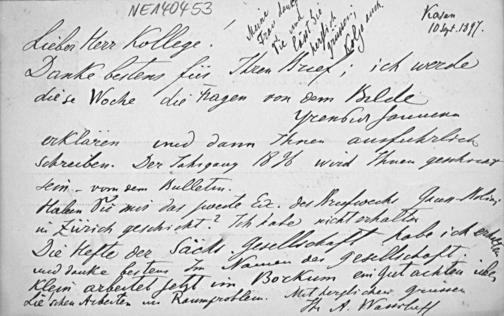 NE140453
Meine
Frau dankt
Sie und
lässt Sie
herzlich
grüssen;
Kolja auch
Kasan
10 Sept. 1897.
Lieber Herr Kollege!
Danke bestens für Ihren Brief; ich werde
diese Woche die Fragen von dem Bilde
erklären und dann Ihnen ausführlich
schreiben. Der Jahrgang 1896 wird Ihnen
sein - von dem Bulletin.
Haben Sie mir das zweite Ex. des Briefwechs.
in Zürich geschickt? Ich habe nicht erhalten
Die Hefte der Sächs. Gesellschaft habe ich erhalten
und danke bestens im Namen der Gesellschaft.
Klein arbeitet jetzt in Borkum ein Gutachten über
Lie'schen Arbeiten im Raumproblem. Mit herzlichen Grüssen
Ihr A. Wassilieff